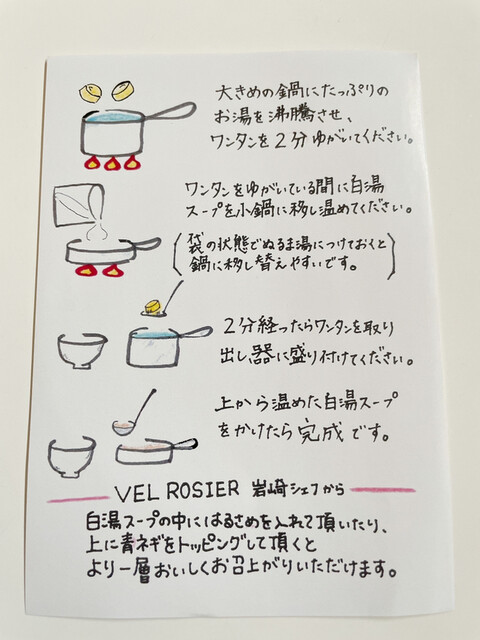 大きめの鍋にたっぷりの
お湯を沸騰させ、
ワンタンを2分ゆがいてください。
ワンタンをゆがいている間に白湯
スープを小鍋に移し温めてください。
(袋の状態でぬるま湯につけておくと
鍋に移し替えやすいです。)
2分経ったらワンタンを取り
出し器に盛り付けてください。
上から温めた白湯スープ
をかけたら完成です。
VEL ROSIER 岩崎シェフから
白湯スープの中にはるさめを入れて頂いたり、
上に青ネギをトッピングして頂くと
より一層おいしくお召上がりいただけます。